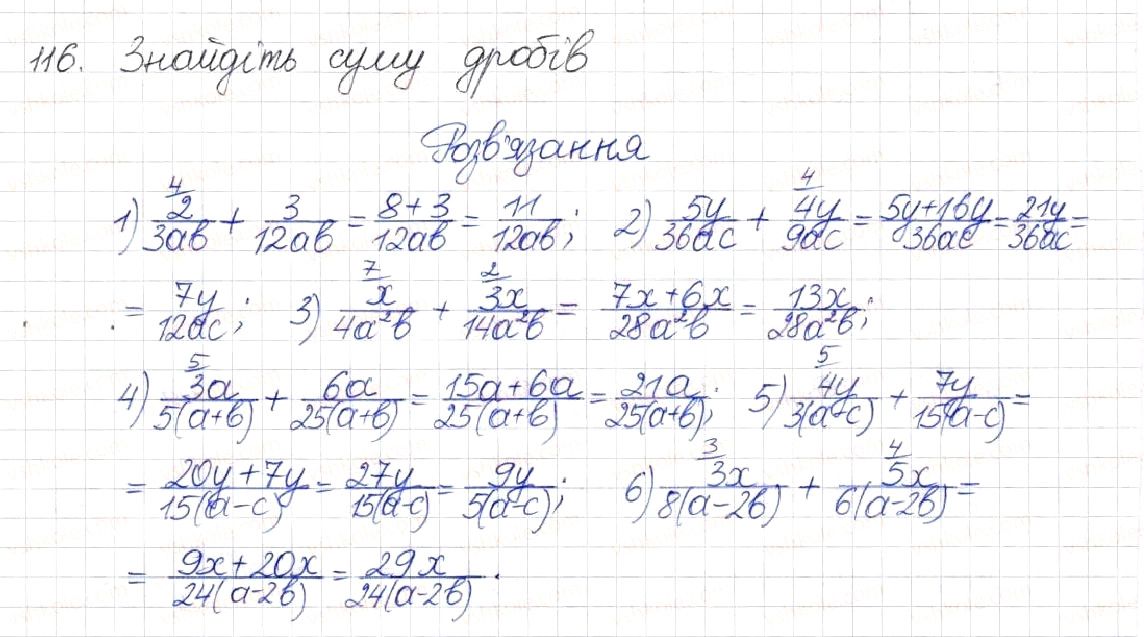 116. Знайдіть суму дробів
Розв'язання
1) 2/3ab (4) + 3/12ab = (8+3)/12ab = 11/12ab; 2) 5y/36ac + 4y/9ac (4) = (5y+16y)/36ac = 21y/36ac =
= 7y/12ac; 3) x/4a²b (7) + 3x/14a²b (2) = (7x+6x)/28a²b = 13x/28a²b;
4) 3a/5(a+b) (5) + 6a/25(a+b) = (15a+6a)/25(a+b) = 21a/25(a+b); 5) 4y/3(a-c) (5) + 7y/15(a-c) =
= (20y+7y)/15(a-c) = 27y/15(a-c) = 9y/5(a-c); 6) 3x/8(a-2b) (3) + 5x/6(a-2b) (4) =
= (9x+20x)/24(a-2b) = 29x/24(a-2b).